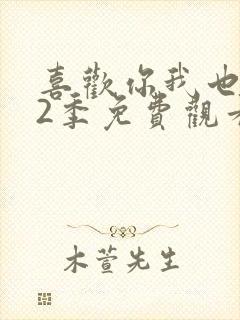 喜歡你我也
2季免費觀
木萱先生